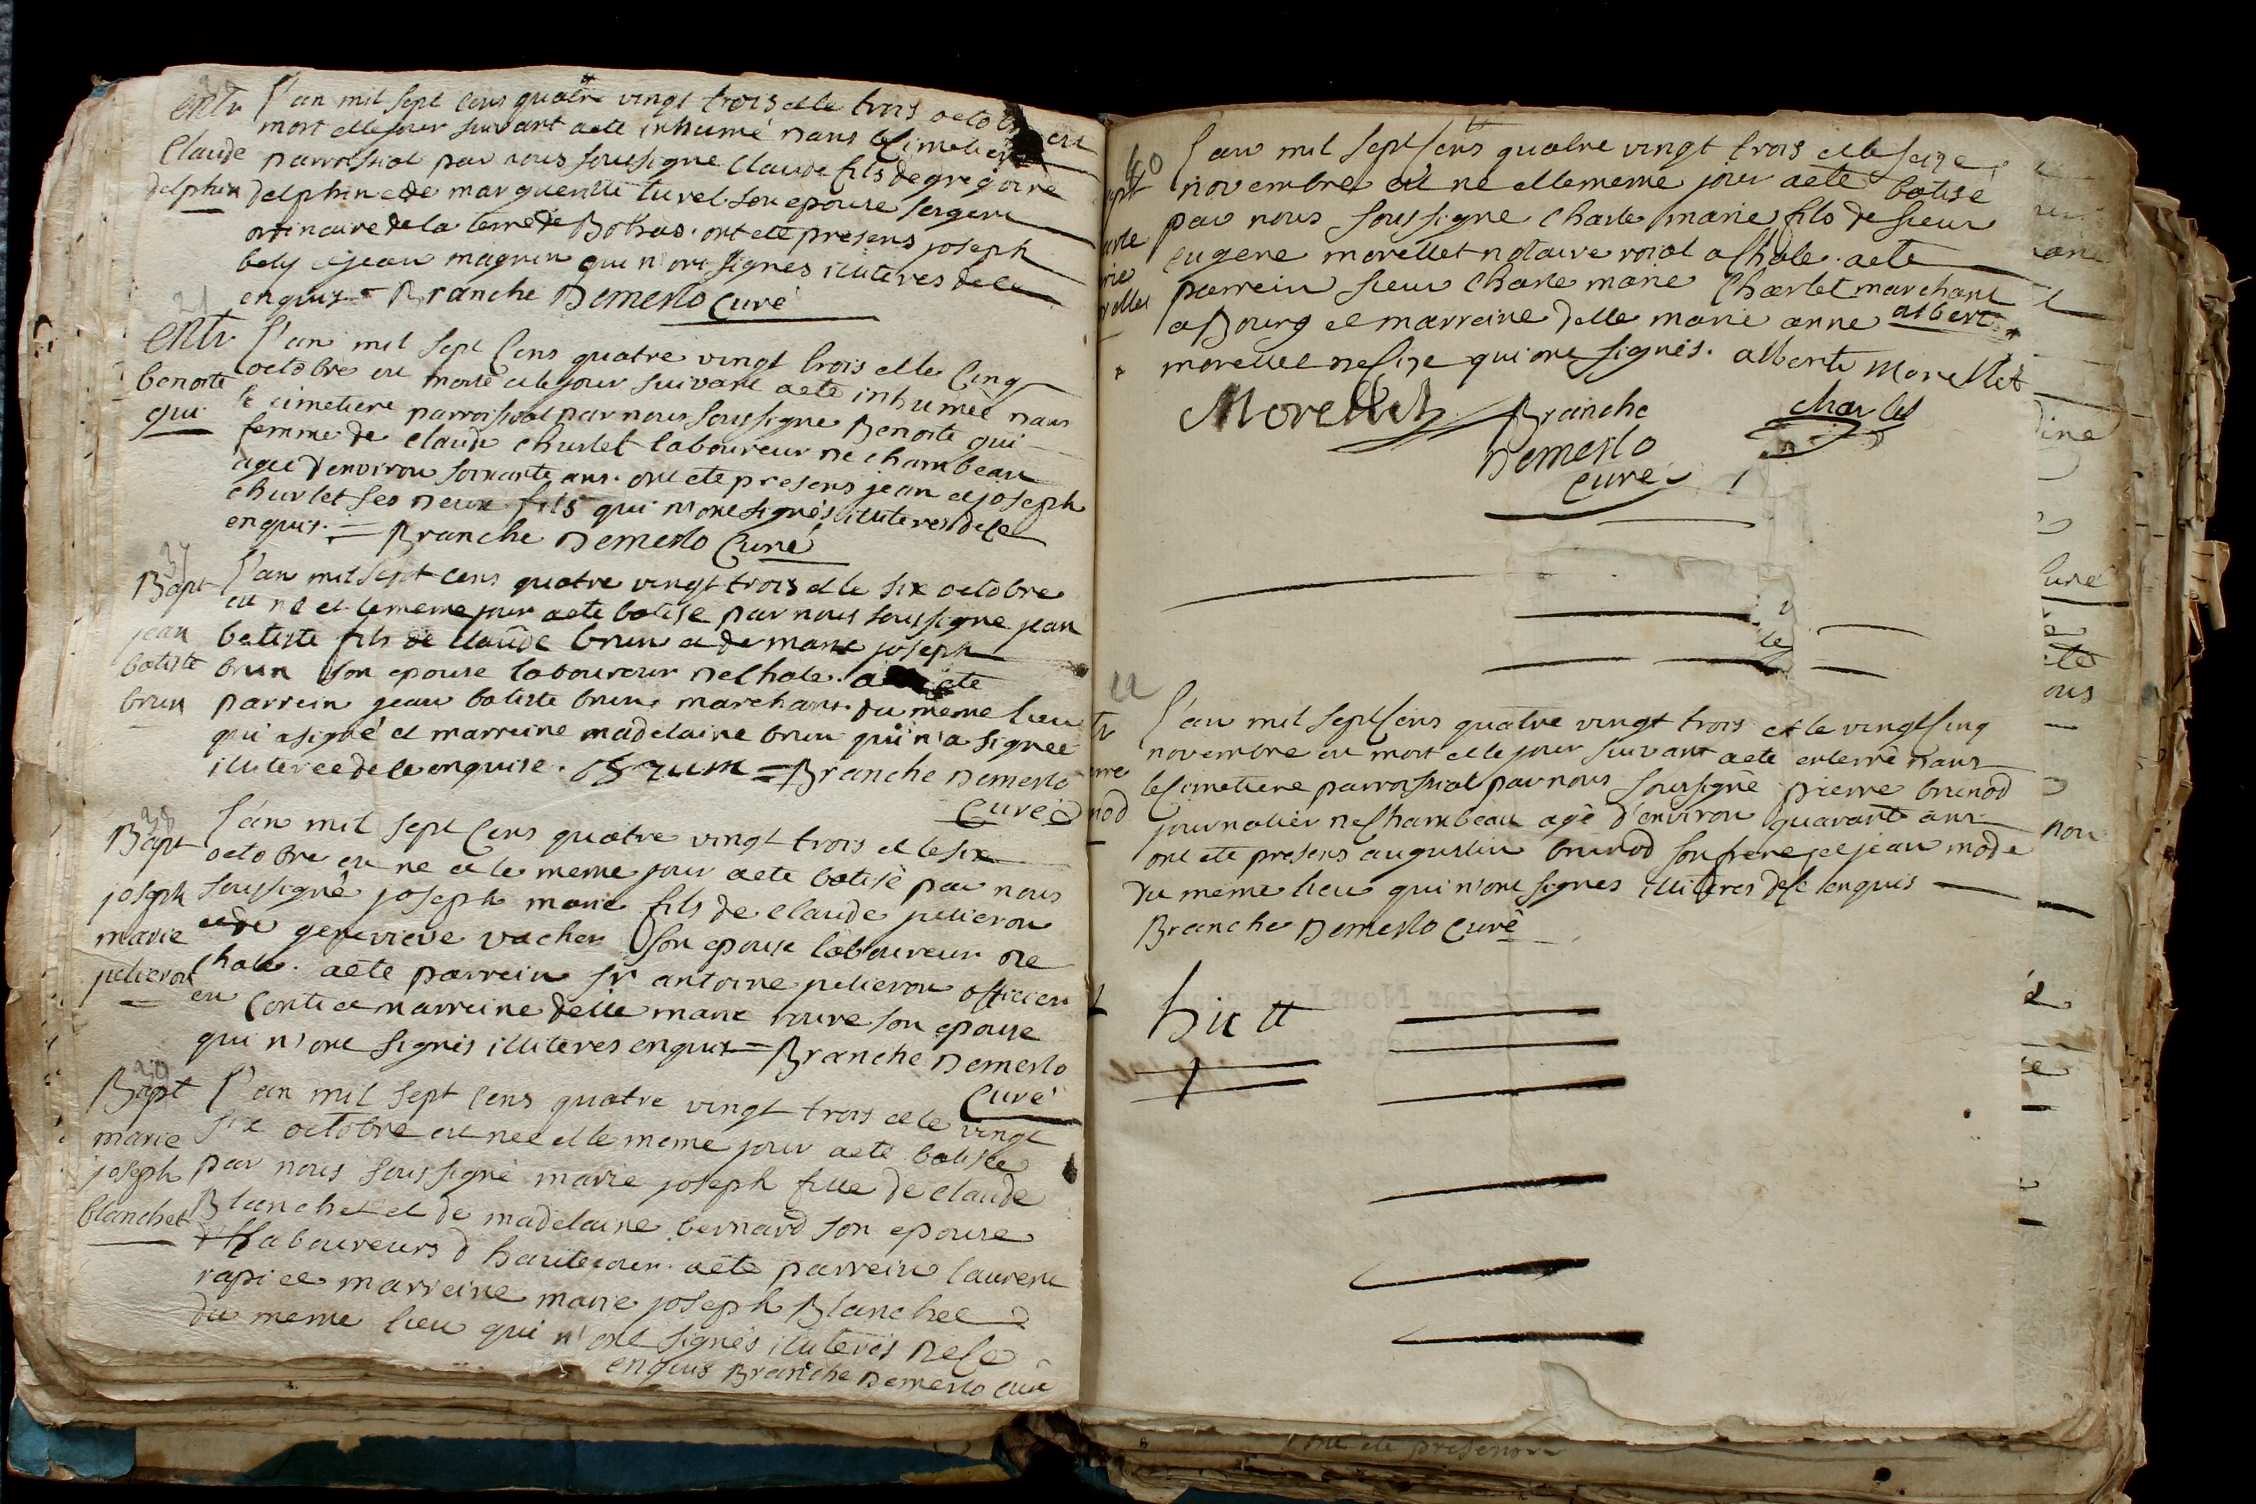 entr
Claude
delphin
L'an mil sept cens quatre vingt trois et le trois octobre est
mort et le jour suivant a eté inhumé dans le cimetiere
parroissial par nous soussigné Claude fils de gregoire
delphin et de margueritte turel son epouse sergent
ordinaire de la terre de Bohas. ont eté presens joseph
bely et jean magnin qui n'ont signés illiteres de ce
enquis = Branche Demerlo Curé
21
entr
benoite
gui
L'an mil sept Cens quatre vingt trois et le Cinq
octobre est morte et le jour suivant a eté inhumée dans
le cimetiere parroissial par nous soussigné Benoite gui
femme de claude churlet laboureur de chambeau
agée d'environ soixante ans. ont eté presens jean et joseph
churlet ses deux fils qui n'ont signés illiteres de ce
enquis. = Branche Demerlo Curé
37
Bapt
jean
batiste
brun
L'an mil sept cens quatre vingt trois et le six octobre
est né et le meme jour a eté batisé par nous soussigné jean
batiste fils de claude brun et de marie joseph
brun son epouse laboureur de Chale. a eté
parrein jean batiste brun marchant du meme lieu
qui a signé et marreine madelaine brun qui n'a signée
illiterée de ce enquise. Brun = Branche Demerlo
Curé
38
Bapt
joseph
marie
julieron
L'an mil sept Cens quatre vingt trois et le six
octobre est né et le meme jour a eté batisé par nous
soussigné joseph marie fils de claude julieron
et de genevieve vacher son epouse laboureur de
Chale. a eté parrein sr antoine julieron officier
en Conti et marreine delle marie
son epouse
qui n'ont signés illiteres enquis = Branche Demerlo
Curé
39
Bapt
marie
joseph
blanchet
L'an mil sept Cens quatre vingt trois et le vingt
six octobre est née et le meme jour a eté batisée
par nous soussigné marie joseph fille de claude
Blanchet et de madelaine bernard son epouse
laboureurs d'hautecour. a eté parrein laurent
rapi et marreine marie joseph Blanchet
du meme lieu qui n'ont signés illiterés de ce
enquis Branche Demerlo Curé
40
L'an mil sept Cens quatre vingt trois et le seize
novembre est né et le meme jour a eté batisé
par nous soussigné Charle marie fils de sieur
eugene morellet notaire roial a Chale. a eté
parrein sieur Charle marie Charlet marchant
a Bourg et marreine delle marie anne albert
morellet de
qui ont signés. alberte Morellet
Morellet
Branche
Demerlo
Curé
charlet
22
L'an mil sept Cens quatre vingt trois et le vingt Cinq
novembre est mort et le jour suivant a eté enterré dans
le Cimetiere parroissial par nous soussigné pierre brunod
journalier de Chambeau agé d'environ quarante ans
ont eté presens augustin brunod son frere et jean mode
du meme lieu qui n'ont signés illiteres de ce enquis
Branche Demerlo Curé
hic tt
ont ete presens